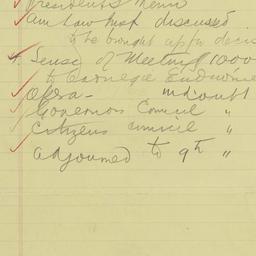 Presidents Menu
Am Law Inst discussed
to be brought up for decis
4. Sense of Meeting 1000
to Carnegie Endowme
Opera - in doubt
Governors Council "
Citizens council "
Adjourned to 9th "